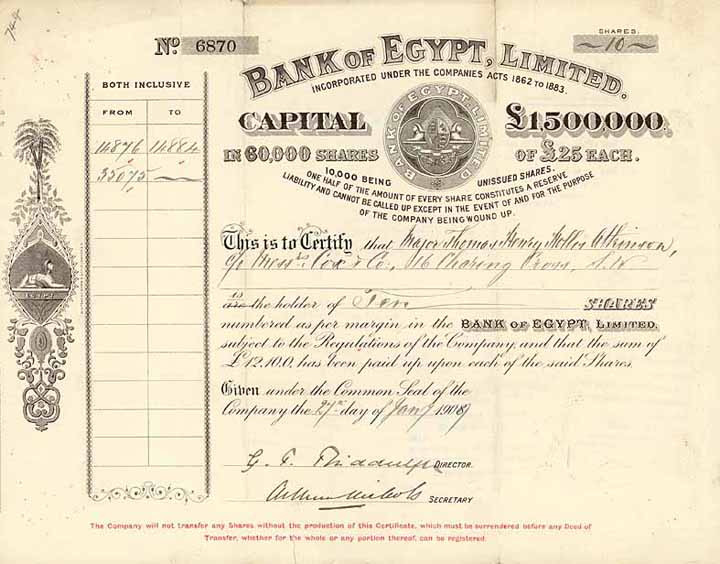 No 6870
SHARES.
10
BANK OF EGYPT, LIMITED.
INCORPORATED UNDER THE COMPANIES ACTS 1862 TO 1883.
CAPITAL £1,500,000.
BANK OF EGYPT LIMITED
IN 60,000 SHARES OF £25 EACH.
10,000 BEING UNISSUED SHARES.
ONE HALF OF THE AMOUNT OF EVERY SHARE CONSTITUTES A RESERVE
LIABILITY AND CANNOT BE CALLED UP EXCEPT IN THE EVENT OF AND FOR THE PURPOSE
OF THE COMPANY BEING WOUND UP.
BOTH INCLUSIVE
FROM TO
14876 14884
33075 —
EGYPT
This is to Certify that Major Thomas Henry Hollis Atkinson,
c/o Messrs Cox & Co., 16 Charing Cross, S.W
is
are the holder of Ten SHARES
numbered as per margin in the BANK OF EGYPT, LIMITED,
subject to the Regulations of the Company, and that the sum of
£12.10.0. has been paid up upon each of the said Shares.
Given under the Common Seal of the
Company the 27th day of Jany 1908
G. T. DIRECTOR.
Arthur Nichols SECRETARY
The Company will not transfer any Shares without the production of this Certificate, which must be surrendered before any Deed of
Transfer, whether for the whole or any portion thereof, can be registered.